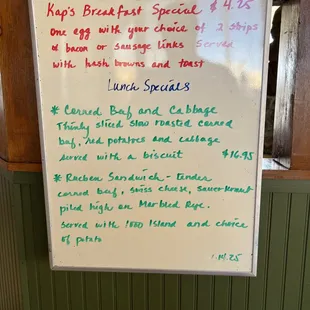 Kap's Breakfast Special $4.25
One egg with your choice of 2 strips
of bacon or sausage links served
with hash browns and toast
Lunch Specials
* Corned Beef and Cabbage
Thinly sliced slow roasted corned
beef, red potatoes and cabbage
served with a biscuit $16.95
* Rueben Sandwich - tender
corned beef, swiss cheese, sauerkraut
piled high on Marbled Rye.
Served with 1000 Island and choice
of potato
14.25